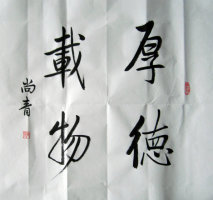 厚德
載物
尚青